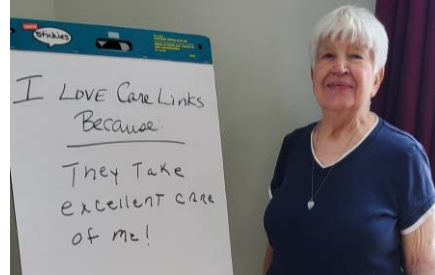 stickies
I LOVE Care Links
Because:
They Take
excellent care
of me!